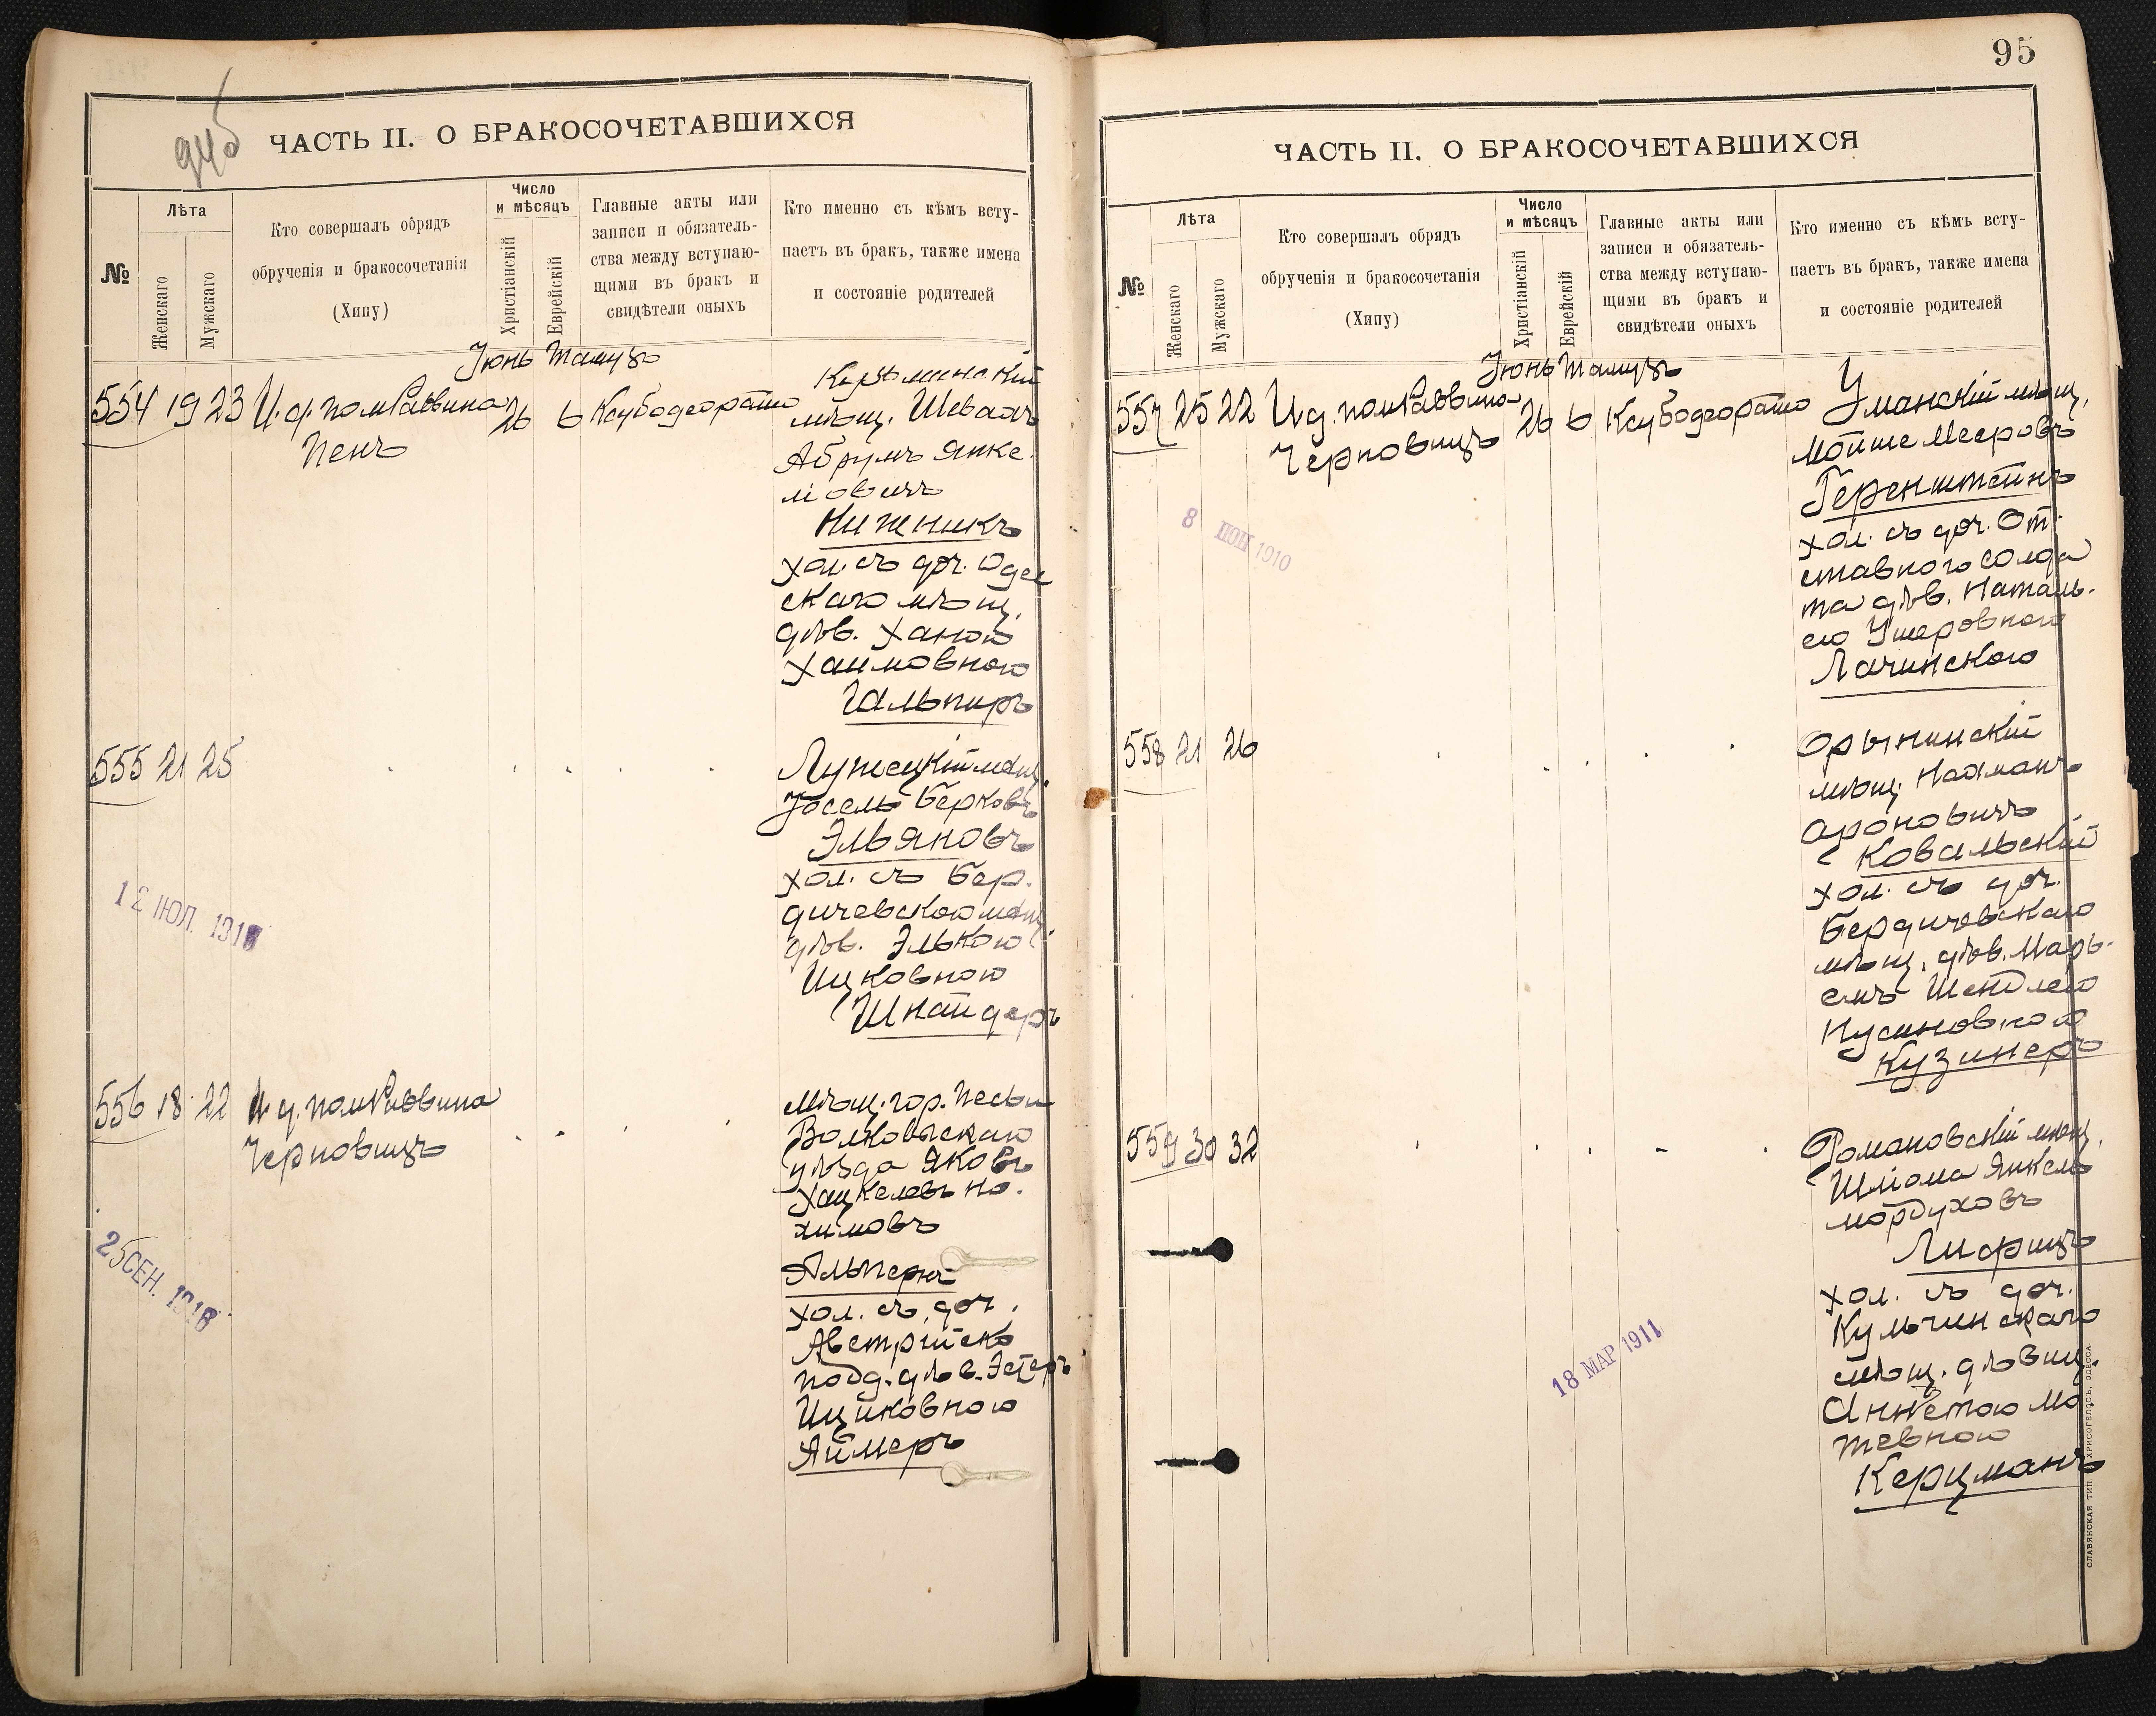 94б
ЧАСТЬ II. О БРАКОСОЧЕТАВШИХСЯ
№
Лѣта
Женскаго
Мужскаго
Кто совершалъ обрядъ
обрученія и бракосочетанія
(Хипу)
Число
и мѣсяцъ
Христіанскій
Еврейскій
Главные акты или
записи и обязатель-
ства между вступаю-
щими въ бракъ и
свидѣтели оныхъ
Кто именно съ кѣмъ всту-
паетъ въ бракъ, также имена
и состояніе родителей
Іюнь Тамузъ
554 19 23 И. д. пом Раввина 26 6
Пенъ
мѣщ. Шевахъ
Абрумъ Янке
левичъ
Нижникъ
хол. съ доч. Одес
скаго мѣщ.
дѣв. Ханою
Хаимовною
Гальперъ
555 21 25
12 ІЮЛ. 1910
мѣщ.
Іосель Берковъ
Эльяновъ
хол. съ Бер.
дичевскою мѣщ.
дѣв. Элькою
Ицковною
Шнайдеръ
556 18 22 И. д. пом Раввина
Черновицъ
25 СЕН. 1910
мѣщ. гор. Пески
Волковыскаго
уѣзда Яковъ
Хацкелевъ На.
химовъ
Альпернъ
хол. съ доч.
Австрійско
подд. дѣв. Эстеръ
Ицковною
Аймеръ
95
ЧАСТЬ II. О БРАКОСОЧЕТАВШИХСЯ
№
Лѣта
Женскаго
Мужскаго
Кто совершалъ обрядъ
обрученія и бракосочетанія
(Хипу)
Число
и мѣсяцъ
Христіанскій
Еврейскій
Главные акты или
записи и обязатель-
ства между вступаю-
щими въ бракъ и
свидѣтели оныхъ
Кто именно съ кѣмъ всту-
паетъ въ бракъ, также имена
и состояніе родителей
Іюнь Тамузъ
557 25 22 И. д. пом Раввина 26 6
Черновицъ
8 1910
Уманскій мѣщ.
Мойше Мееровъ
Геренштейнъ
хол. съ доч. От.
ставного солда
та дѣв. Наталь.
ею Ушеровною
Лачинскою
558 21 26
Орынинскій
мѣщ. Нахманъ
Ароновичъ
Ковальскій
хол. съ доч.
Бердичевскаго
мѣщ. дѣв. Марь.
емъ Шендлею
Нусиновною
Кузинеръ
559 30 32
18 МАР 1911
Романовскій мѣщ.
Шліома Янкель
Мордуховъ
Лифшицъ
хол. съ доч.
Кульчинскаго
мѣщ. дѣвиц.
Аннетою Мо
тевною
Керцманъ
СЛАВЯНСКАЯ ТИП. ХРИСОГЕЛОСЪ, ОДЕССА.